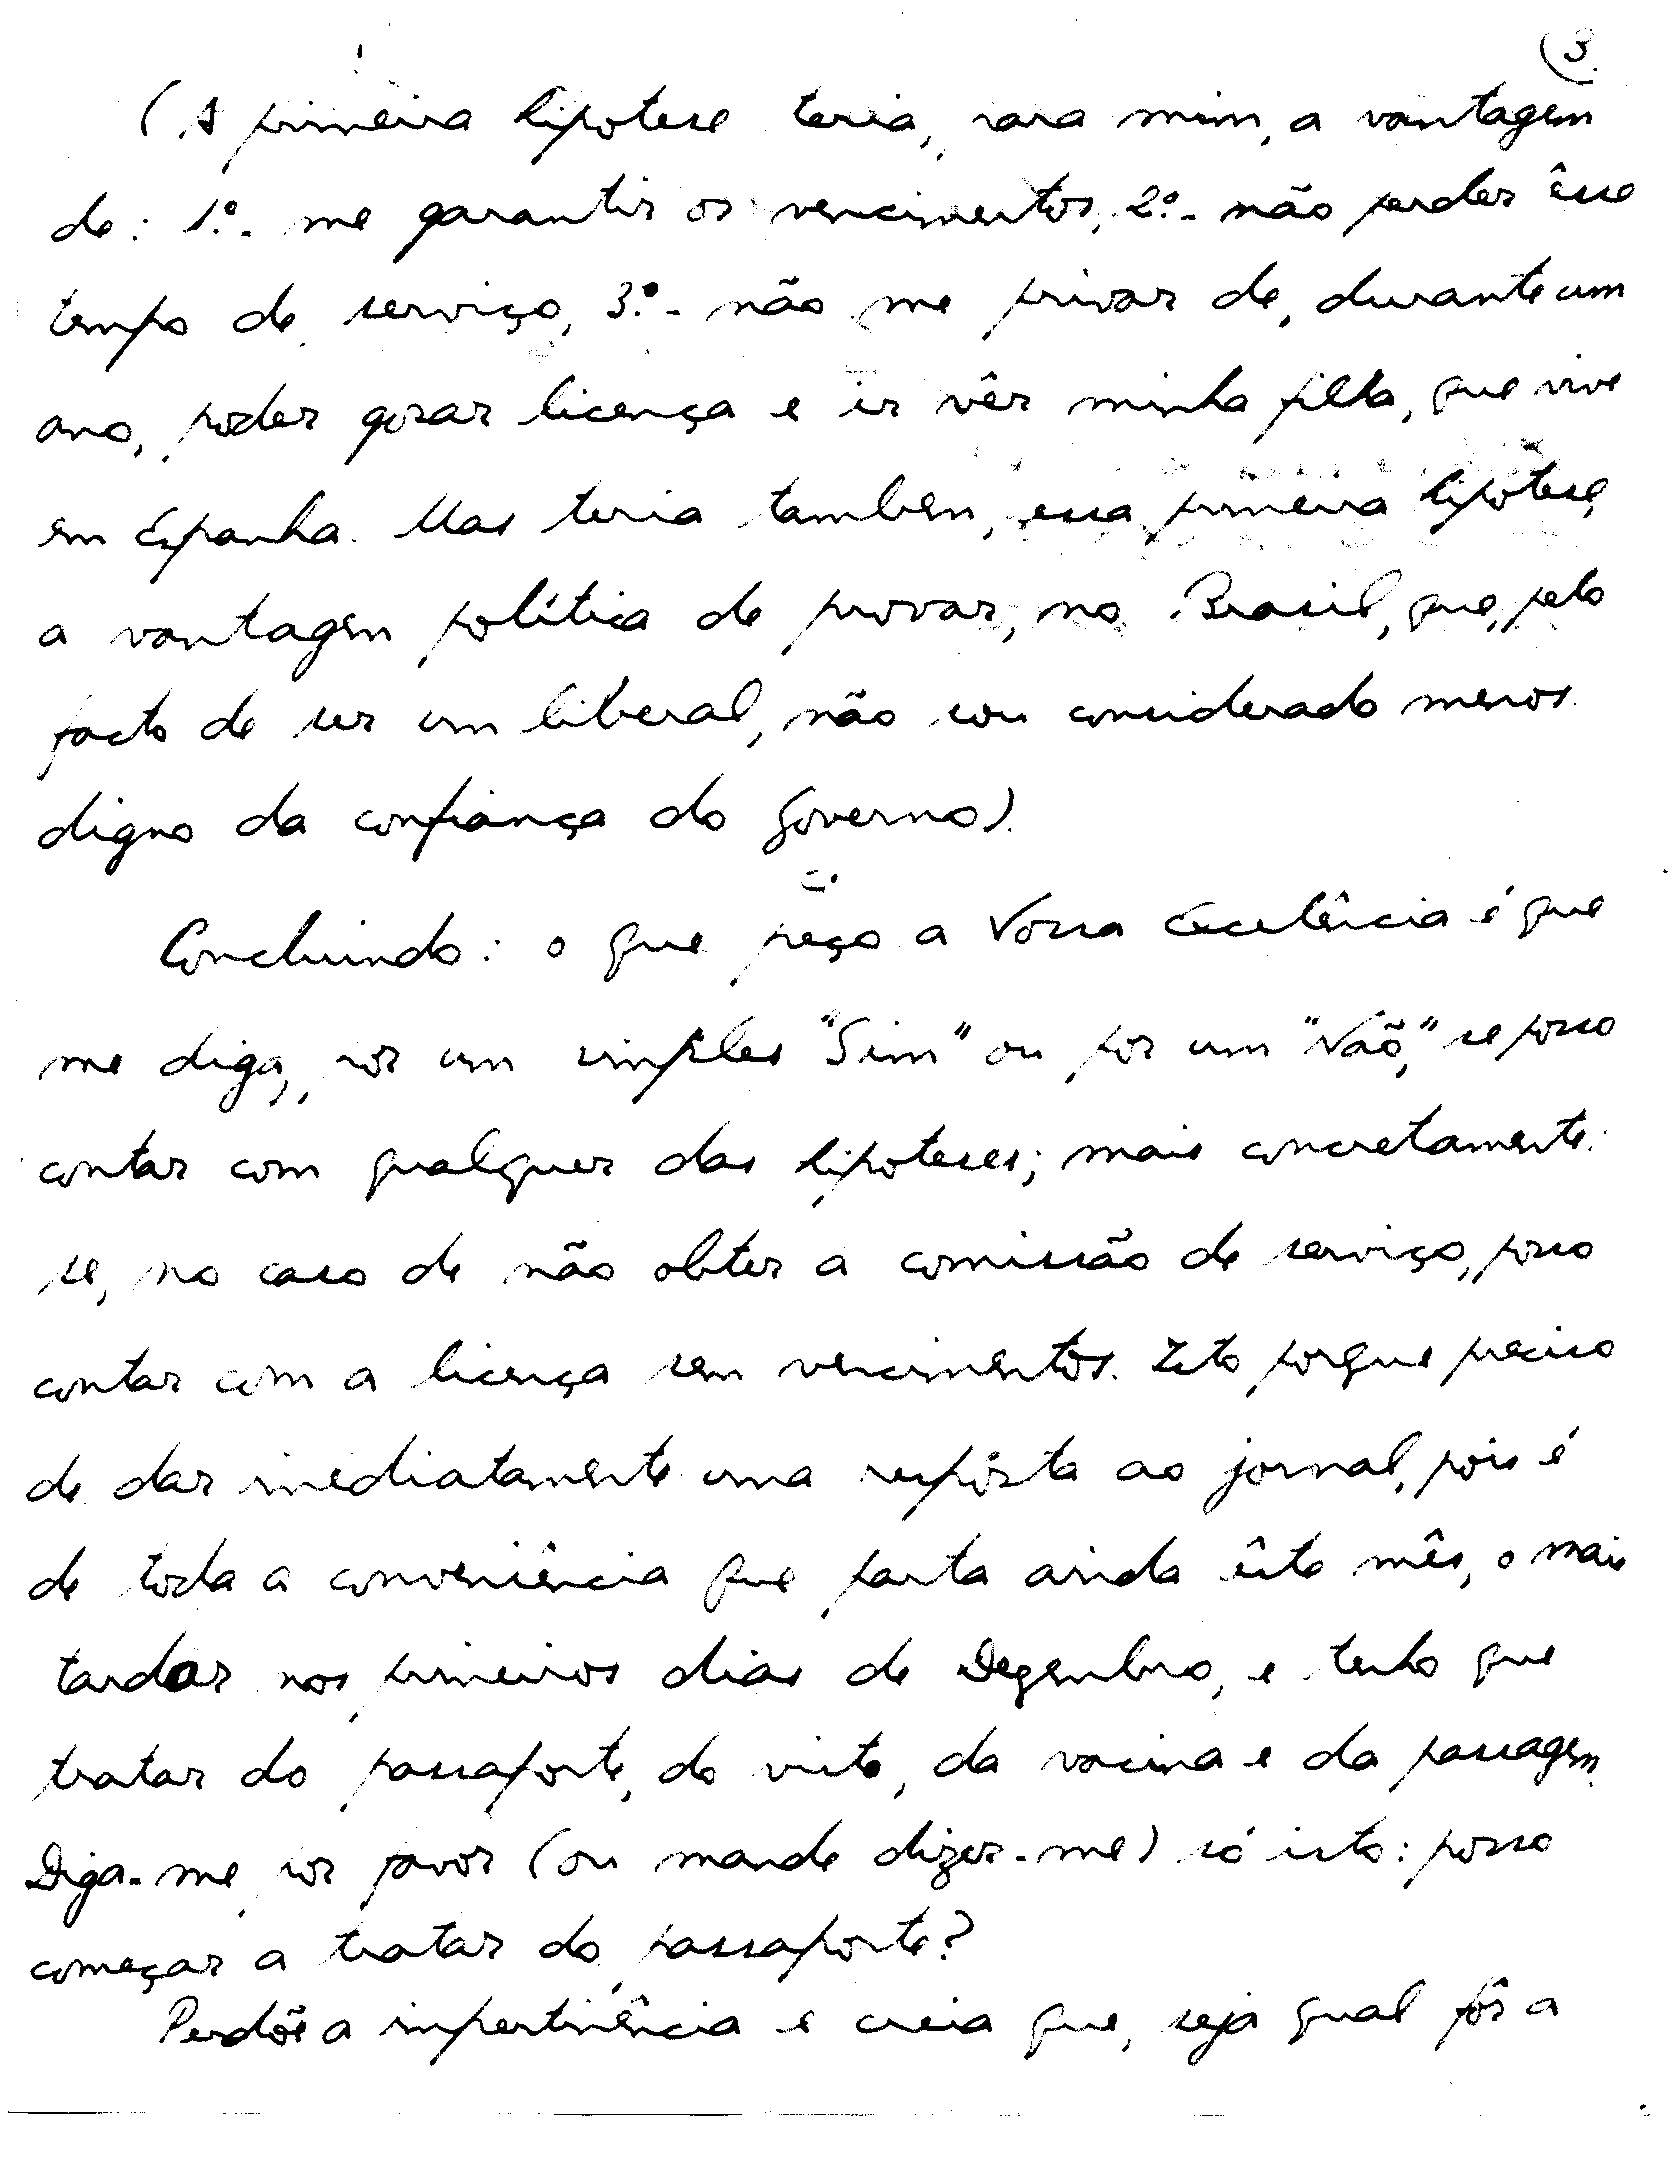 3
(A primeira hipotese teria, para mim, a vantagem
de: 1.º- me garantir os vencimentos, 2.º- não perder êsse
tempo de serviço, 3.º- não me privar de, durante um
ano, poder gozar licença e ir vêr minha filha, que vive
em Espanha. Mas teria tambem, essa primeira hipótese,
a vantagem política de provar, no Brasil, que, pelo
facto de ser um liberal, não sou considerado menos
digno da confiança do Governo).
Concluindo: o que peço a Vossa Excelência é que
me diga, por um simples "Sim" ou por um "Não," se posso
contar com qualquer das hipoteses; mais concretamente:
se, no caso de não obter a comissão de serviço, posso
contar com a licença sem vencimentos. Isto porque preciso
de dar imediatamente uma respósta ao jornal, pois é
de toda a conveniência que parta ainda êste mês, o mais
tardar nos primeiros dias de Dezembro, e tenho que
tratar do passaporte, do visto, da vacina e da passagem.
Diga-me por favor (ou mande dizer-me) só isto: posso
começar a tratar do passaporte?
Perdôe a impertinência e creia que, seja qual fôr a